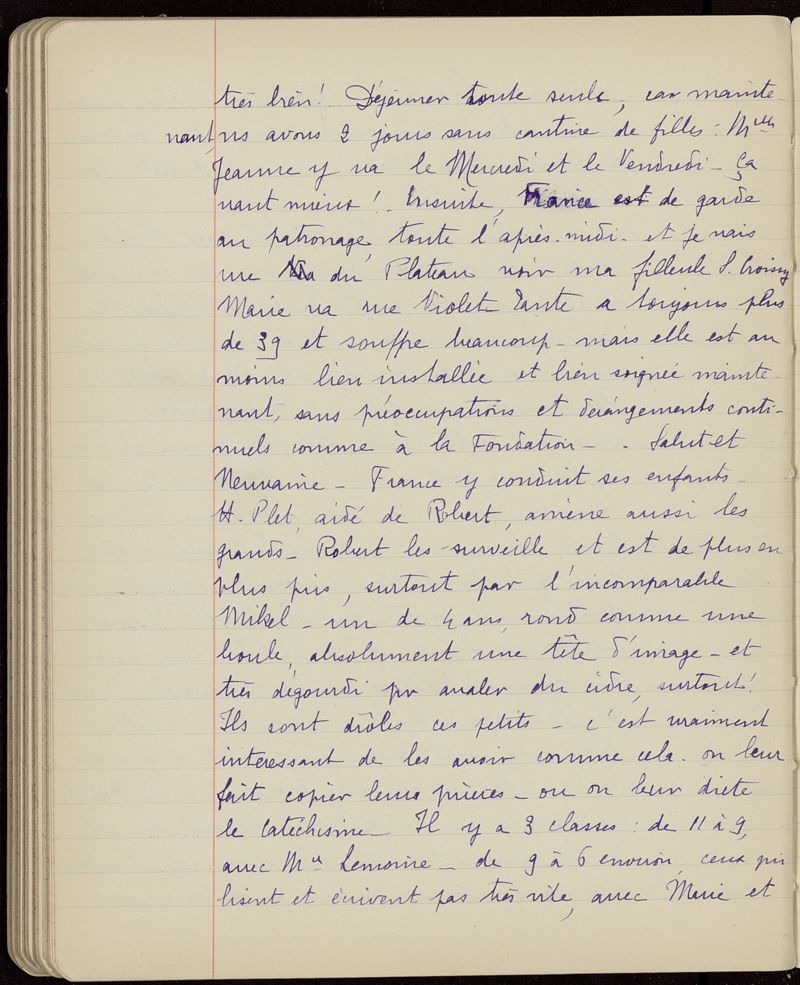 très bien! Déjeuner toute seule, car mainte-
nant, ns avons 2 jours sans cantine de filles: Melle
Jeanne y va le Mercredi et le Vendredi - ça
vaut mieux! Ensuite, France est de garde
au patronage, toute l'après-midi - et je vais
rue du Plateau voir ma filleule S. Croisy
Marie va rue Violet. Tante a toujours plus
de 39 et souffre beaucoup - mais elle est au
moins bien installée et bien soignée mainte-
nant, sans préoccupations et dérangements conti-
nuels comme à la Fondation - . Salut et
Neuvaine - France y conduit ses enfants -
H. Plet, aidé de Robert, amène aussi les
grands - Robert les surveille et est de plus en
plus pris, surtout par l'incomparable
Mikel - un de 4 ans, rond comme une
boule, absolument une tête d'image - et
très dégourdi pr avaler du cidre, surtout!
Ils sont drôles ces petits - c'est vraiment
intéressant de les avoir comme cela. on leur
fait copier leurs prières - ou on leur dicte
le catéchisme - Il y a 3 classes: de 11 à 9,
avec Mr Lemoine - de 9 à 6 environ, ceux qui
lisent et écrivent pas très vite, avec Marie et